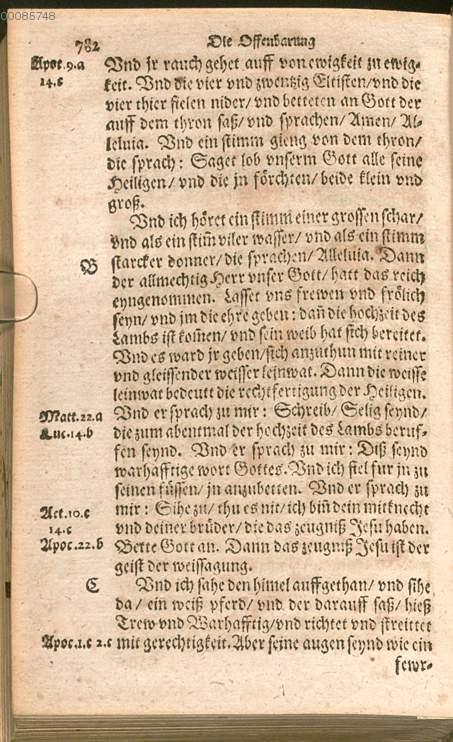 00085748
782
Die Offenbarung
Apoc.9.a
14.c
Vnd jr rauch gehet auff von ewigkeit zu ewig-
keit. Vnd die vier vnd zwentzig Eltisten/vnd die
vier thier fielen nider/ vnd betteten an Gott der
auff dem thron saß/ vnd sprachen/ Amen/ Al-
leluia. Vnd ein stimm gieng von dem thron/
die sprach: Saget lob vnserm Gott alle seine
Heiligen/ vnd die jn förchten/ beide klein vnd
groß.
Vnd ich höret ein stimm einer grossen schar/
vnd als ein stim̃ viler wasser/ vnd als ein stimm
B
starcker donner/ die sprachen/ Alleluia. Dann
der allmechtig Herr vnser Gott/ hatt das reich
eyngenommen. Lasset vns frewen vnd frölich
seyn/ vnd jm die ehre geben: dañ die hochzeit des
Lambs ist kom̃en/ vnd sein weib hat sich bereitet.
Vnd es ward jr geben/sich anzuthun mit reiner
vnd gleissender weisser leinwat. Dann die weisse
leinwat bedeutt die rechtfertigung der Heiligen.
Matt.22.a
Luc.14.b
Vnd er sprach zu mir: Schreib/ Selig seynd/
die zum abentmal der hochzeit des Lambs beruf-
fen seynd. Vnd er sprach zu mir: Diß seynd
warhafftige wort Gottes. Vnd ich fiel fur jn zu
seinen füssen/ jn anzubetten. Vnd er sprach zu
Act.10.c
14.c
mir: Sihe zu/ thu es nit/ ich bin̄ dein mitknecht
vnd deiner brüder/ die das zeugniß Jesu haben.
Apoc.22.b
Bette Gott an. Dann das zeugniß Jesu ist der
geist der weissagung.
C
Vnd ich sahe den himel auffgethan/ vnd sihe
da/ ein weiß pferd/ vnd der darauff saß/ hieß
Trew vnd Warhafftig/vnd richtet vnd streittet
Apoc.1.c 2.c
mit gerechtigkeit. Aber seine augen seynd wie ein
fewr-